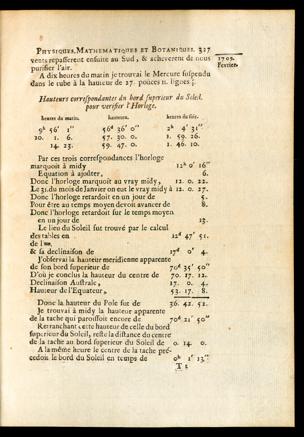 PHYSIQUES, MATHEMATIQUES ET BOTANIQUES. 327
vents repasserent ensuite au Sud, & acheverent de nous
purifier l'air.
1709.
Fevrier.
A dix heures du matin je trouvai le Mercure suspendu
dans le tube à la hauteur de 27. pouces 11. lignes
Hauteurs correspondantes du bord superieur du Soleil
pour verifier l'Horloge.
heures du matin. hauteurs. heures du soir.
9h 56' 1'' 56d 36' 0'' 2h 4' 31''
10. 1. 6. 57. 30. 0. 1. 59. 26.
14. 23. 59. 47. 0. 1. 46. 10.
Par ces trois correspondances l'horloge
marquoit à midy 12h 0' 16''
Equation à ajoûter, 6.
Donc l'horloge marquoit au vray midy, 12. 0. 22.
Le 31. du mois de Janvier on eut le vray midy à 12. 0. 27.
Donc l'horloge retardoit en un jour de 5.
Pour être au temps moyen devoit avancer de 8.
Donc l'horloge retardoit sur le temps moyen
en un jour de 13.
Le lieu du Soleil fut trouvé par le calcul
des tables en 12d 47' 51.
de
& sa declinaison de 17d 0' 4.
J'observai la hauteur meridienne apparente
de son bord superieur de 70d 35' 50''
D'où je conclus la hauteur du centre de 70. 17. 12.
Declinaison Australe, 17. 0. 4.
Hauteur de l'Equateur, 53. 17. 8.
Donc la hauteur du Pole fut de 36. 42. 52.
Je trouvai à midy la hauteur apparente
de la tache qui paroissoit encore de 70d 21' 50''
Retranchant cette hauteur de celle du bord
superieur du Soleil, reste la distance du centre
de la tache au bord superieur du Soleil de 0. 14. 0.
A la même heure le centre de la tache pré-
cedoit le bord du Soleil en temps de 0h 1' 13''
T t